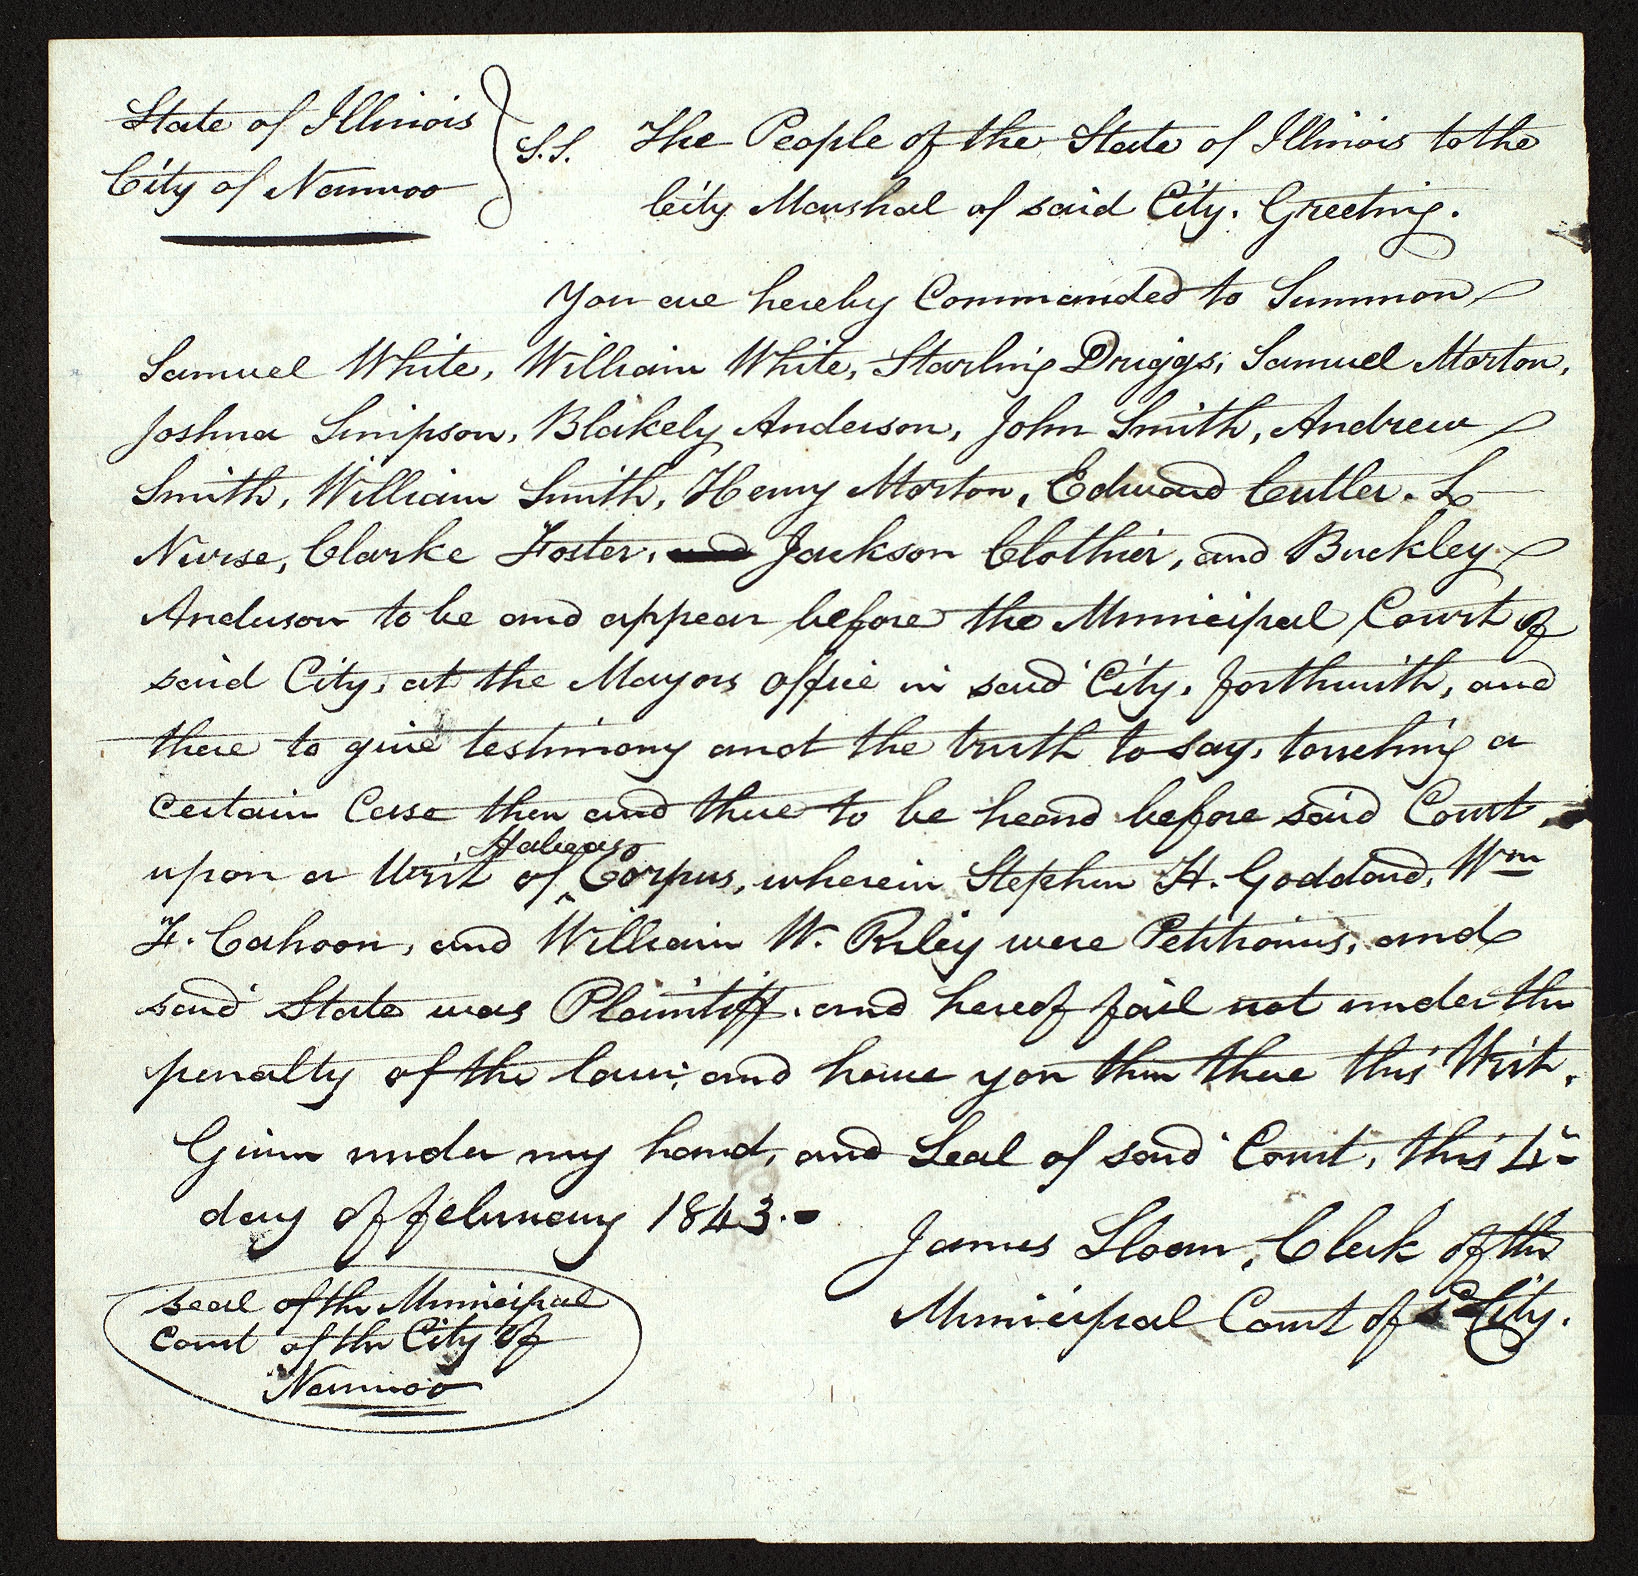 State of Illinois
City of Nauvoo
S.S. The People of the State of Illinois to the
City Marshal of said City. Greeting.
You are hereby Commanded to Summon
Samuel White, William White, Starling Driggs, Samuel Morton,
Joshua Simpson, Blakely Anderson, John Smith, Andrew
Smith, William Smith, Henry Morton, Edward Cutler. L
Nurse, Clarke Foster, and Jackson Clothier, and Buckley
Anderson to be and appear before the Municipal Court of
said City, at the Mayors office in said City, forthwith, and
there to give testimony and the truth to say, touching a
certain Case then and there to be heard before said Court,
upon a Writ of Habeas Corpus, wherein Stephen H. Goddard, Wm
F. Cahoon, and William W. Riley were Petitioners, and
said State was Plaintiff. and hereof fail not under the
penalty of the law; and have you then there this Writ.
Given under my hand, and Seal of said Court, this 4th
day of february 1843.-
James Sloan, Clerk of the
Municipal Court of sd City.
seal of the Municipal
Court of the City of
Nauvoo